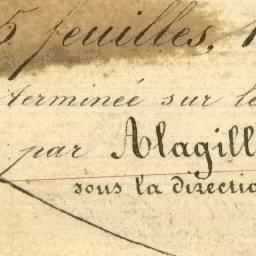 5 feuilles, 1
terminée sur le
par Alagill
sous la directio